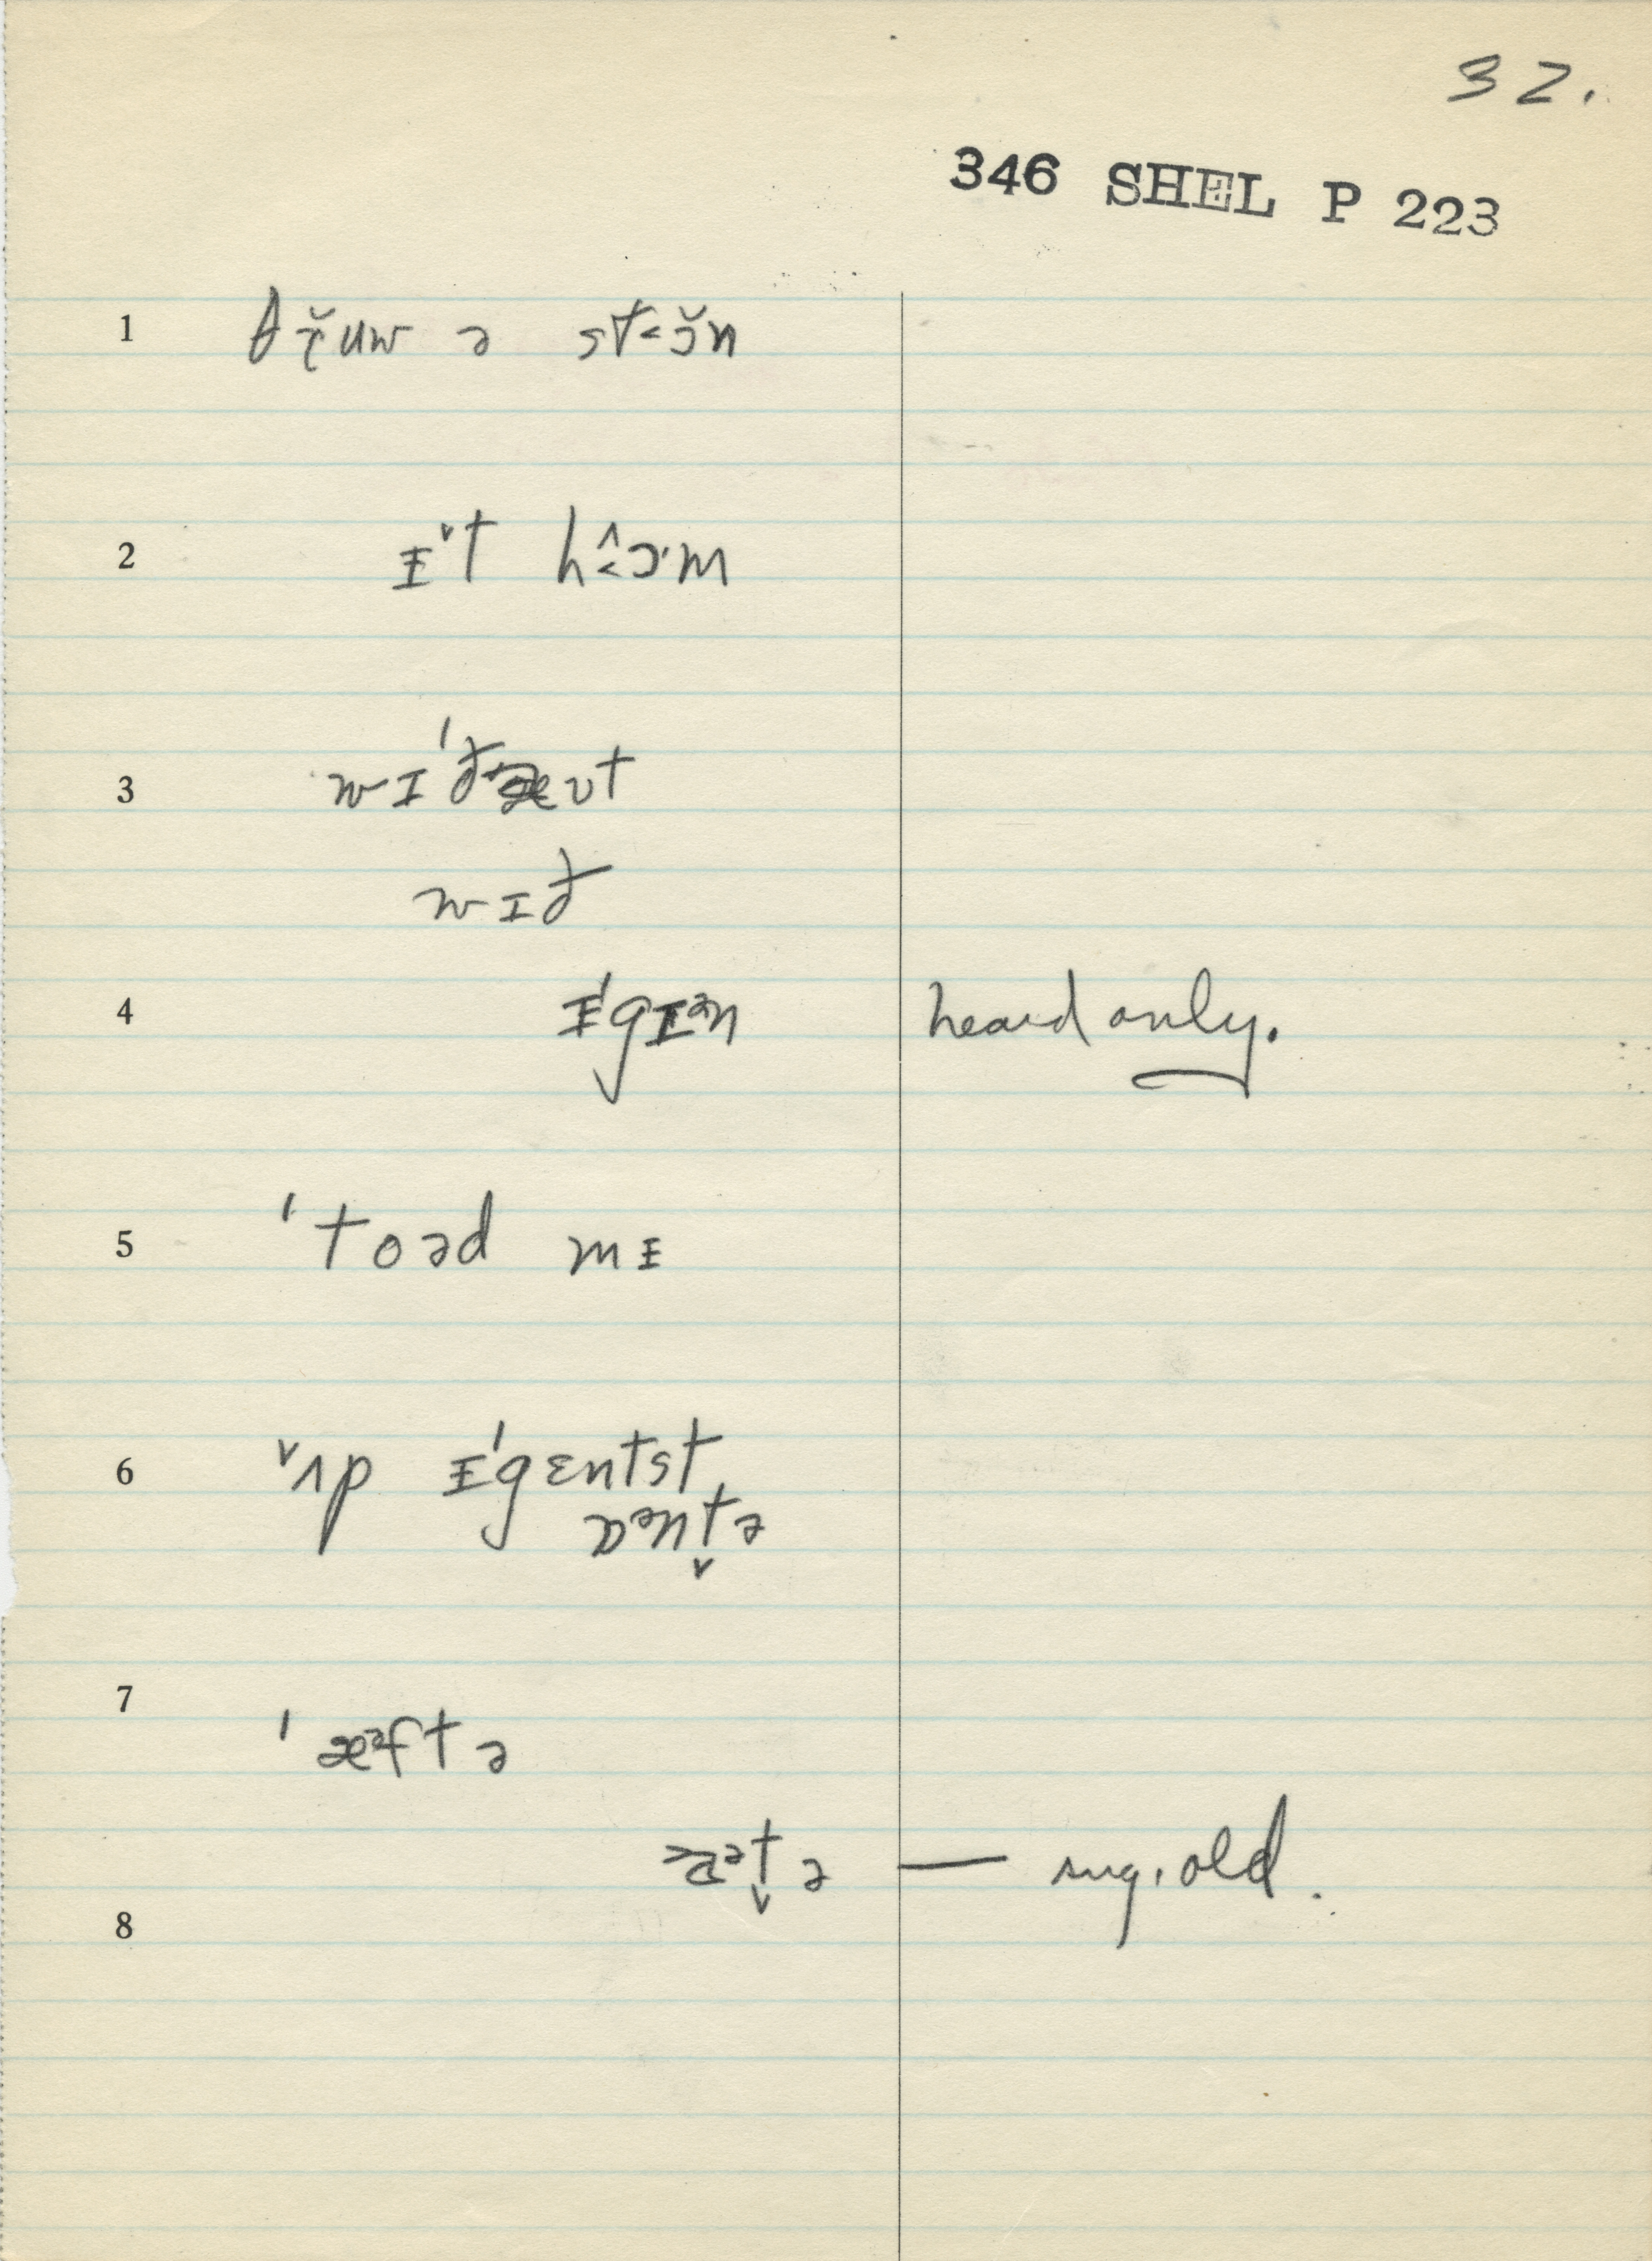 32.
346 SHEL P 223
1 θɾ̆uw ə st˂ɔ̆n
2 ᵻˇt h˂̂ɔ·m
3 wɪˈðæʊt
wɪð
4 ᵻˈgᵻᵊn heard only.
5 ˈtoəd mᵻ
6 ˇʌp ᵻˈgɛntst
ɒᵊnt̬ə
7 ˈæᵊftə
t̬ə — sug. old.
8